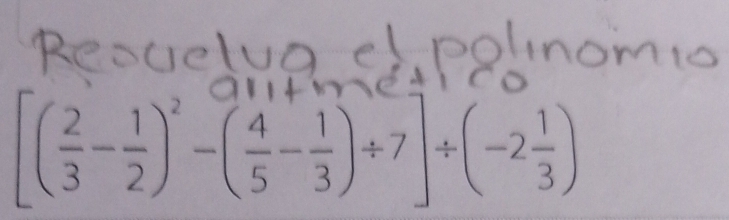 Resuelva el polinomio
aritmético
[(2/3 − 1/2)² − (4/5 − 1/3) ÷ 7] ÷ (−2 1/3)